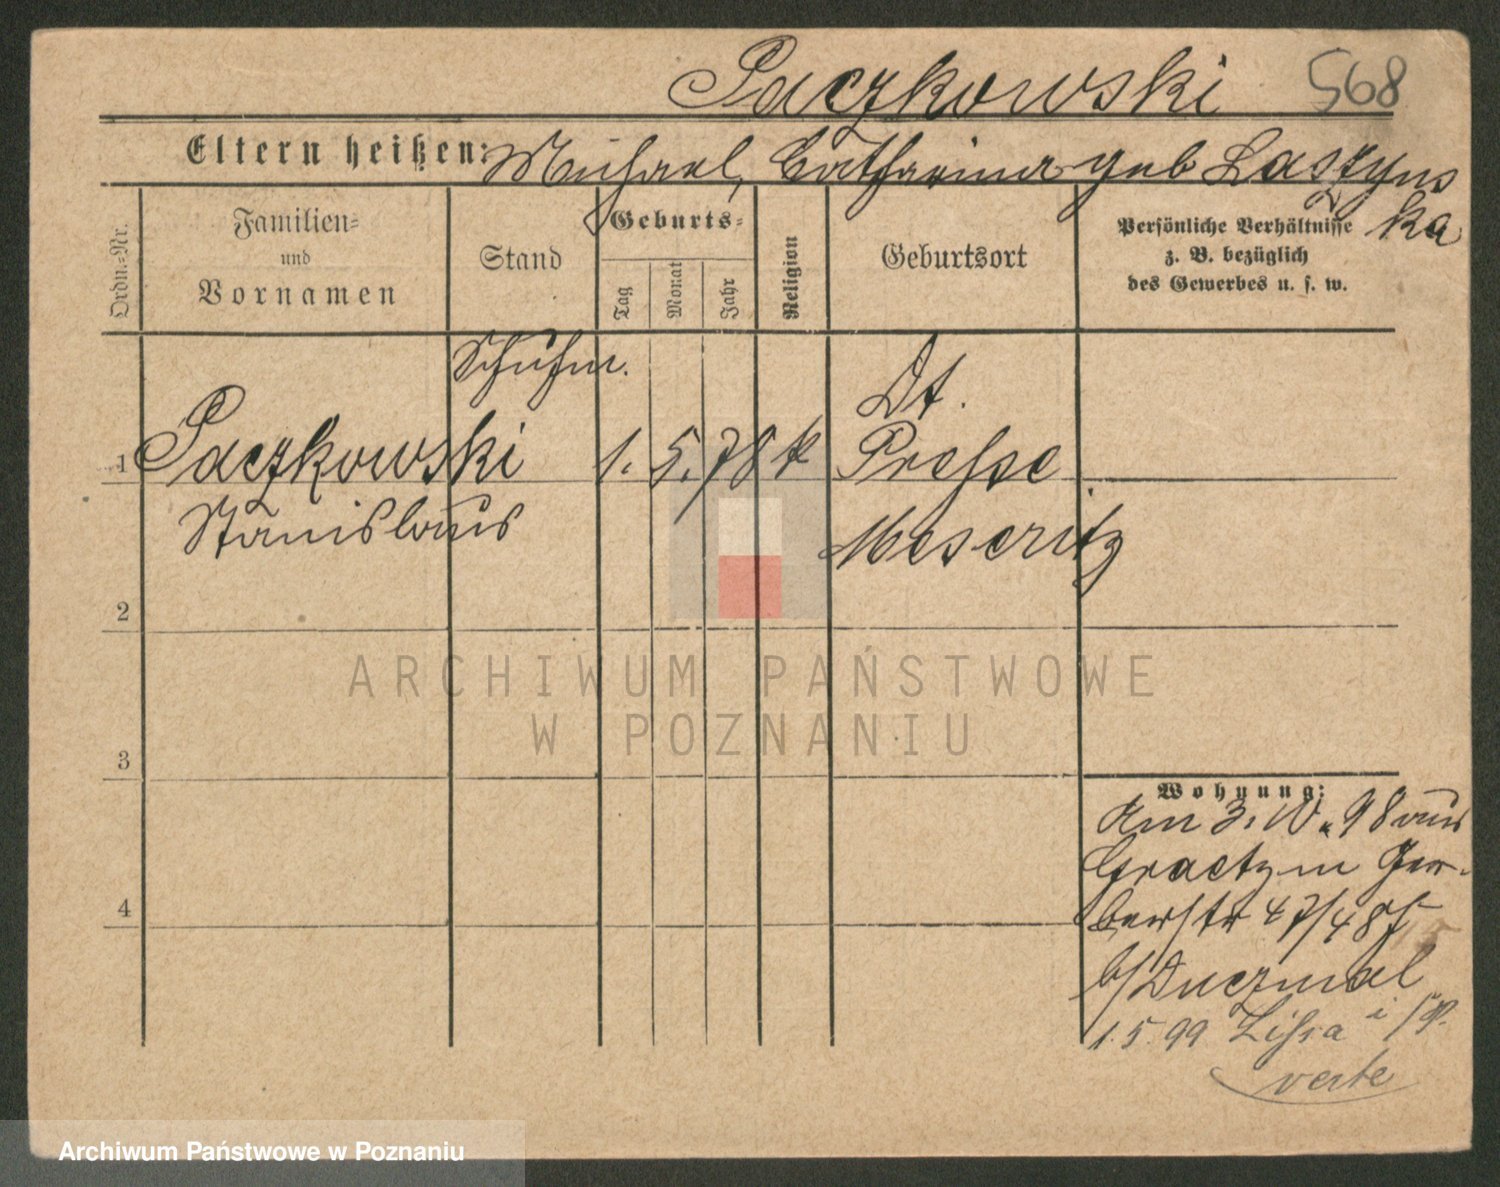 Paczkowski 568
Eltern heißen: Michael, Catharina geb Laszyns
ka
Ordn.-Nr.
Familien-
und
Vornamen
Stand
Geburts-
Tag
Monat
Jahr
Religion
Geburtsort
Persönliche Verhältnisse
z. B. bezüglich
des Gewerbes u. s. w.
Schuhm.
Dt.
1 Paczkowski 1. 5. 78 k Presse
Stanislaus Meseritz
2
ARCHIWUM PAŃSTWOWE
W POZNANIU
3
Wohnung:
Am 3. 10. 98 aus
Graetz in Ger-
4
berstr 47/48
b/ Duczmal
1. 5. 99 Lissa i/P.
verte
Archiwum Państwowe w Poznaniu